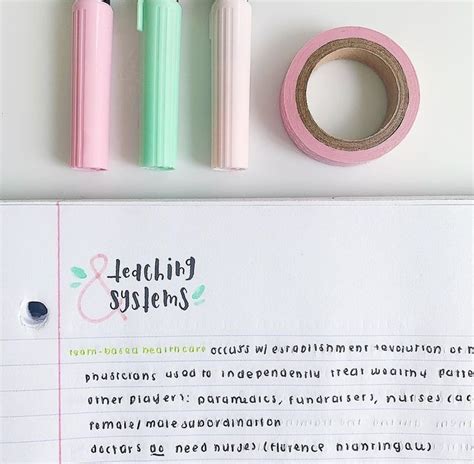 teaching
& systems
team-based healthcare occurs w/ establishment + evolution of
physicians used to independently treat wealthy
other players: paramedics, fundraisers, nurses
female/male subordination
doctors do need nurses (florence nightingale)